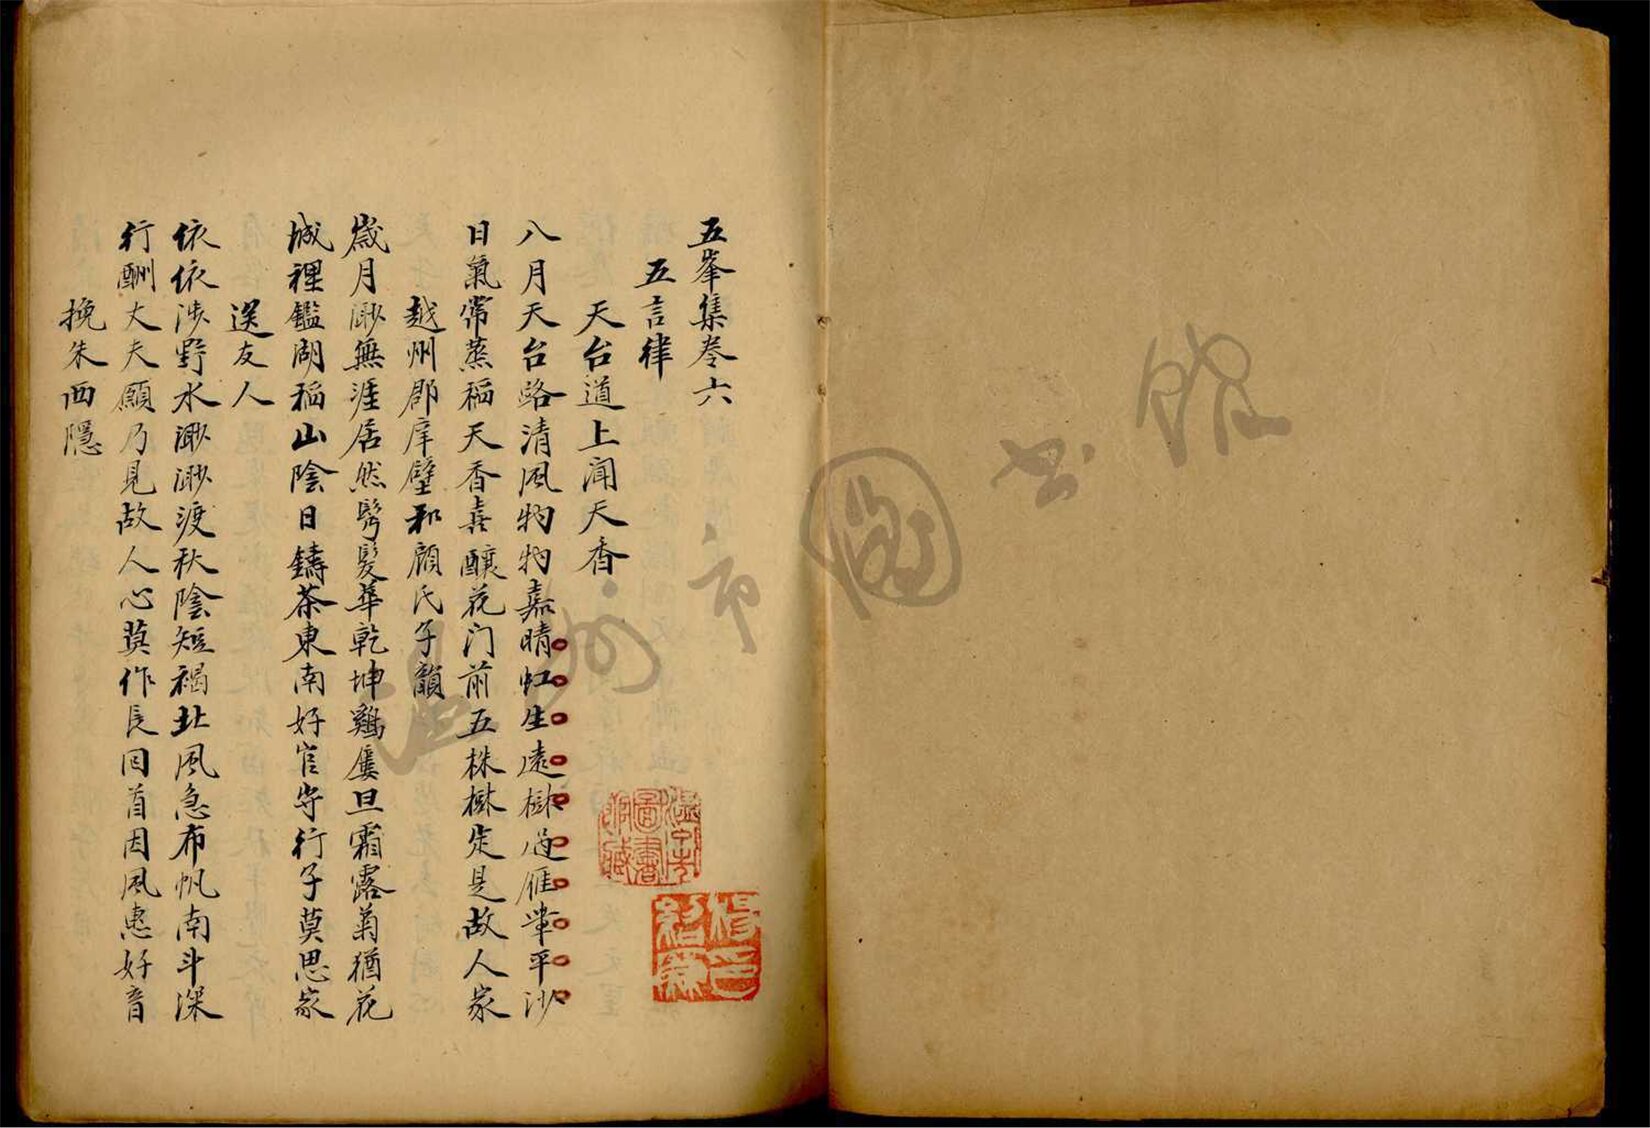 五峯集卷六
五言律
天台道上闻天香
八月天台路清風物物嘉晴虹生遠樹過雁举平沙
日氣常蒸稲天香喜釀花门前五株樹定是故人家
越州郡庠壁和顧氏子韻
歲月渺無涯居然鬂髮華乾坤鷄屢旦霜露菊猶花
城裡鑑湖稲山陰日鑄茶東南好官守行子莫思家
送友人
依依涉野水渺渺渡秋陰短褐北風急布帆南斗深
行酬丈夫願乃見故人心莫作長回首因風惠好音
挽朱西隱
溫州市圖书館